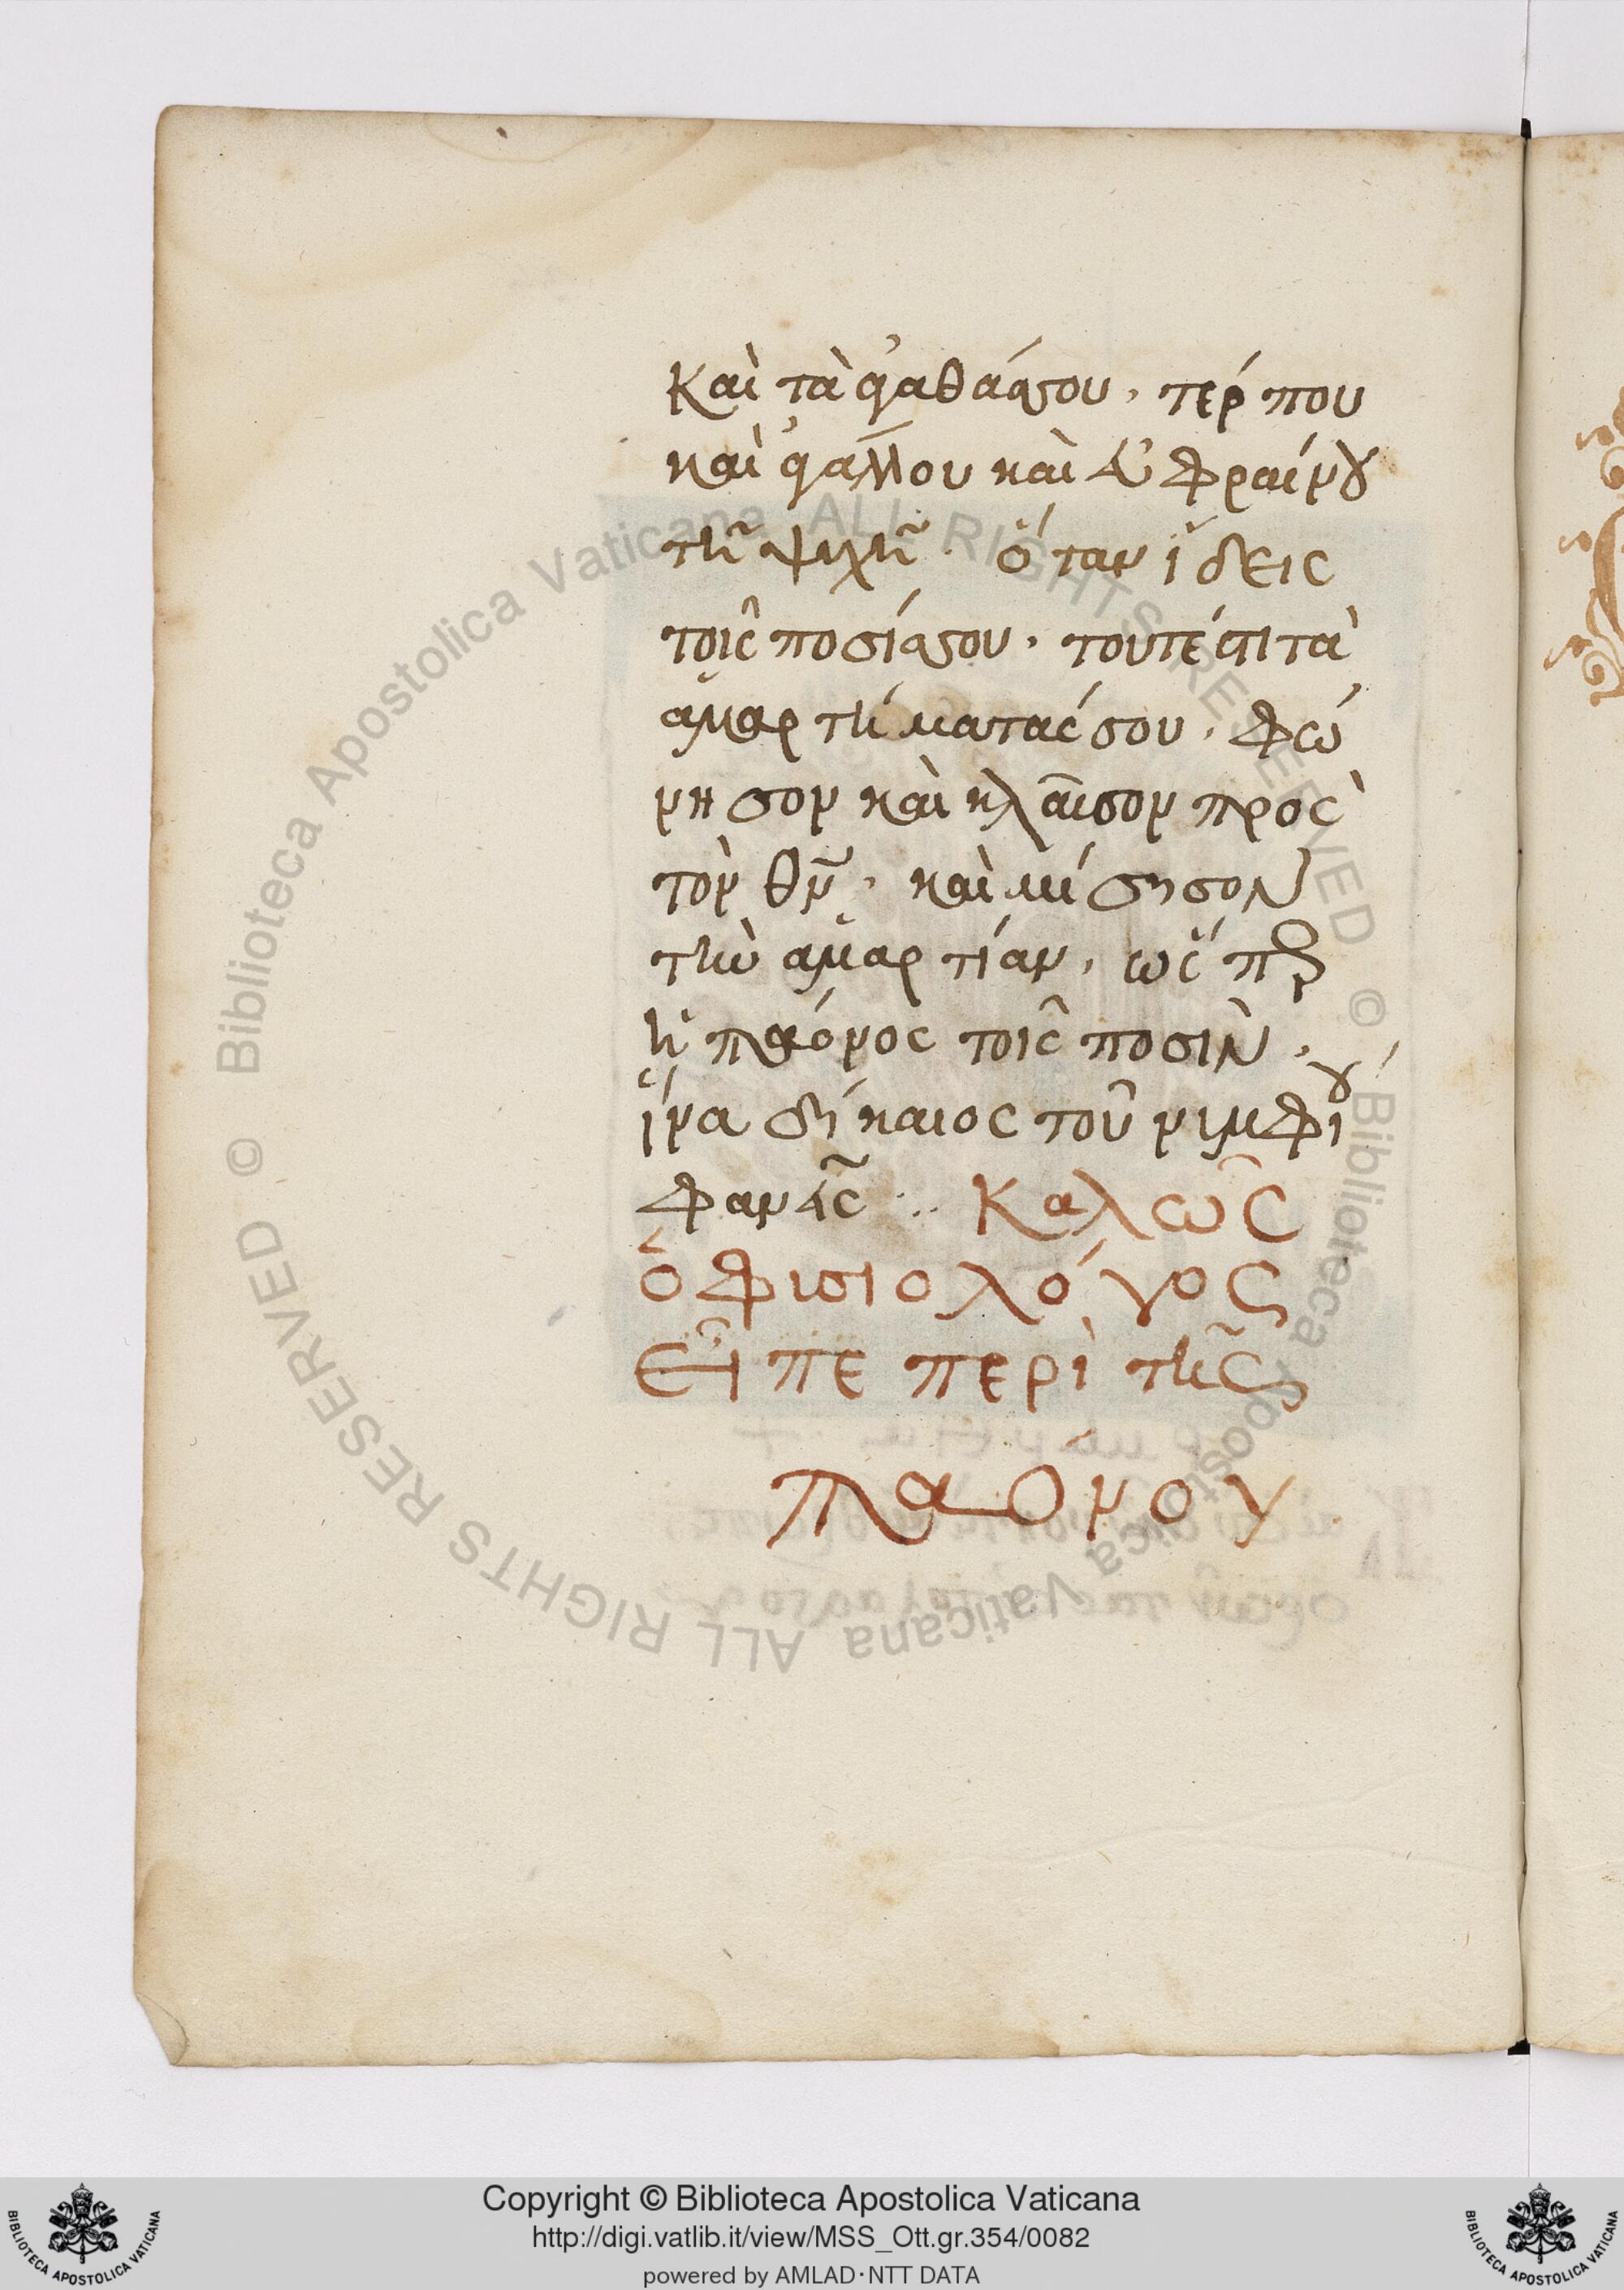 καὶ τὰ ἀγαθάσου, τέρπου
καὶ ἀγάλλου καὶ εὐφραίνου
τῇ ψυχῇ. ὅταν ἴδεις
τοῖς ποσίσου, τουτέστι τὰ
ἁμαρτήματάς σου, φώ
νησον καὶ κλαῖσον προς
τὸν θν̃, καὶ μίσησον
τὴν ἁμαρτίαν, ὡς
ἡ παόνος τοῖς ποσὶν,
ἵνα δήκαιος τοῦ νιμφίου
φανεῖς :. Καλῶς
ὁ φισιολόγος
εἶπε περὶ τῆς
παόνου
Copyright © Biblioteca Apostolica Vaticana
http://digi.vatlib.it/view/MSS_Ott.gr.354/0082
powered by AMLAD·NTT DATA
BIBLIOTECA APOSTOLICA VATICANA
BIBLIOTECA APOSTOLICA VATICANA
© Biblioteca Apostolica Vaticana ALL RIGHTS RESERVED © Biblioteca Apostolica Vaticana ALL RIGHTS RESERVED